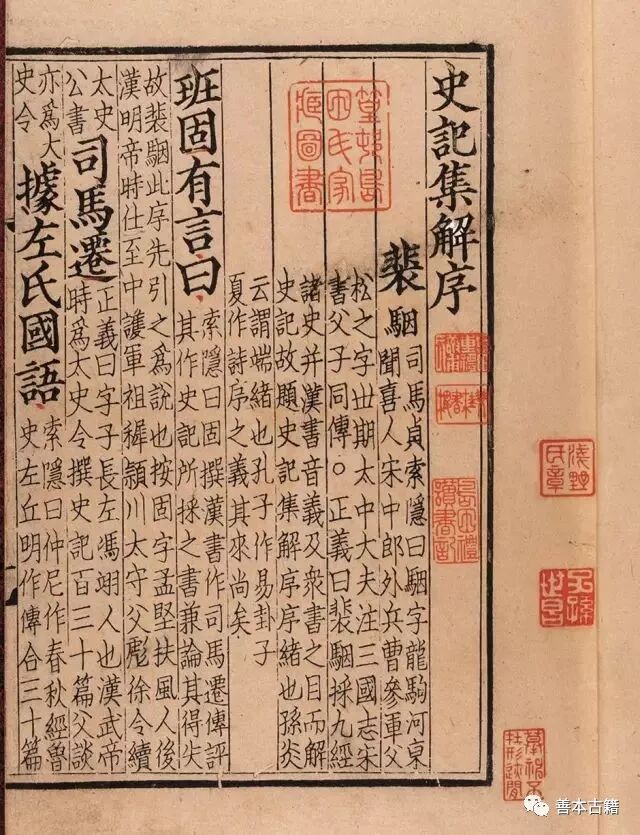 史記集解序
裴駰
司馬貞索隱曰駰字龍駒河東
聞喜人宋中郎外兵曹參軍父
松之字丗期太中大夫注三國志宋
書父子同傳○正義曰裴駰採九經
諸史并漢書音義及衆書之目而解
史記故題史記集解序序緒也孫炎
云謂端緒也孔子作易卦子
夏作詩序之義其來尚矣
班固有言曰
索隱曰固撰漢書作司馬遷傳評
其作史記所採之書兼論其得失
故裴駰此序先引之爲說也按固字孟堅扶風人後
漢明帝時仕至中護軍祖穉潁川太守父彪徐令續
太史
公書
司馬遷
正義曰字子長左馮翊人也漢武帝
時爲太史令撰史記百三十篇父談
亦爲太
史令
據左氏國語
索隱曰仲尼作春秋經魯
史左丘明作傳合三十篇
篁村島
田氏家
藏圖書
善本古籍